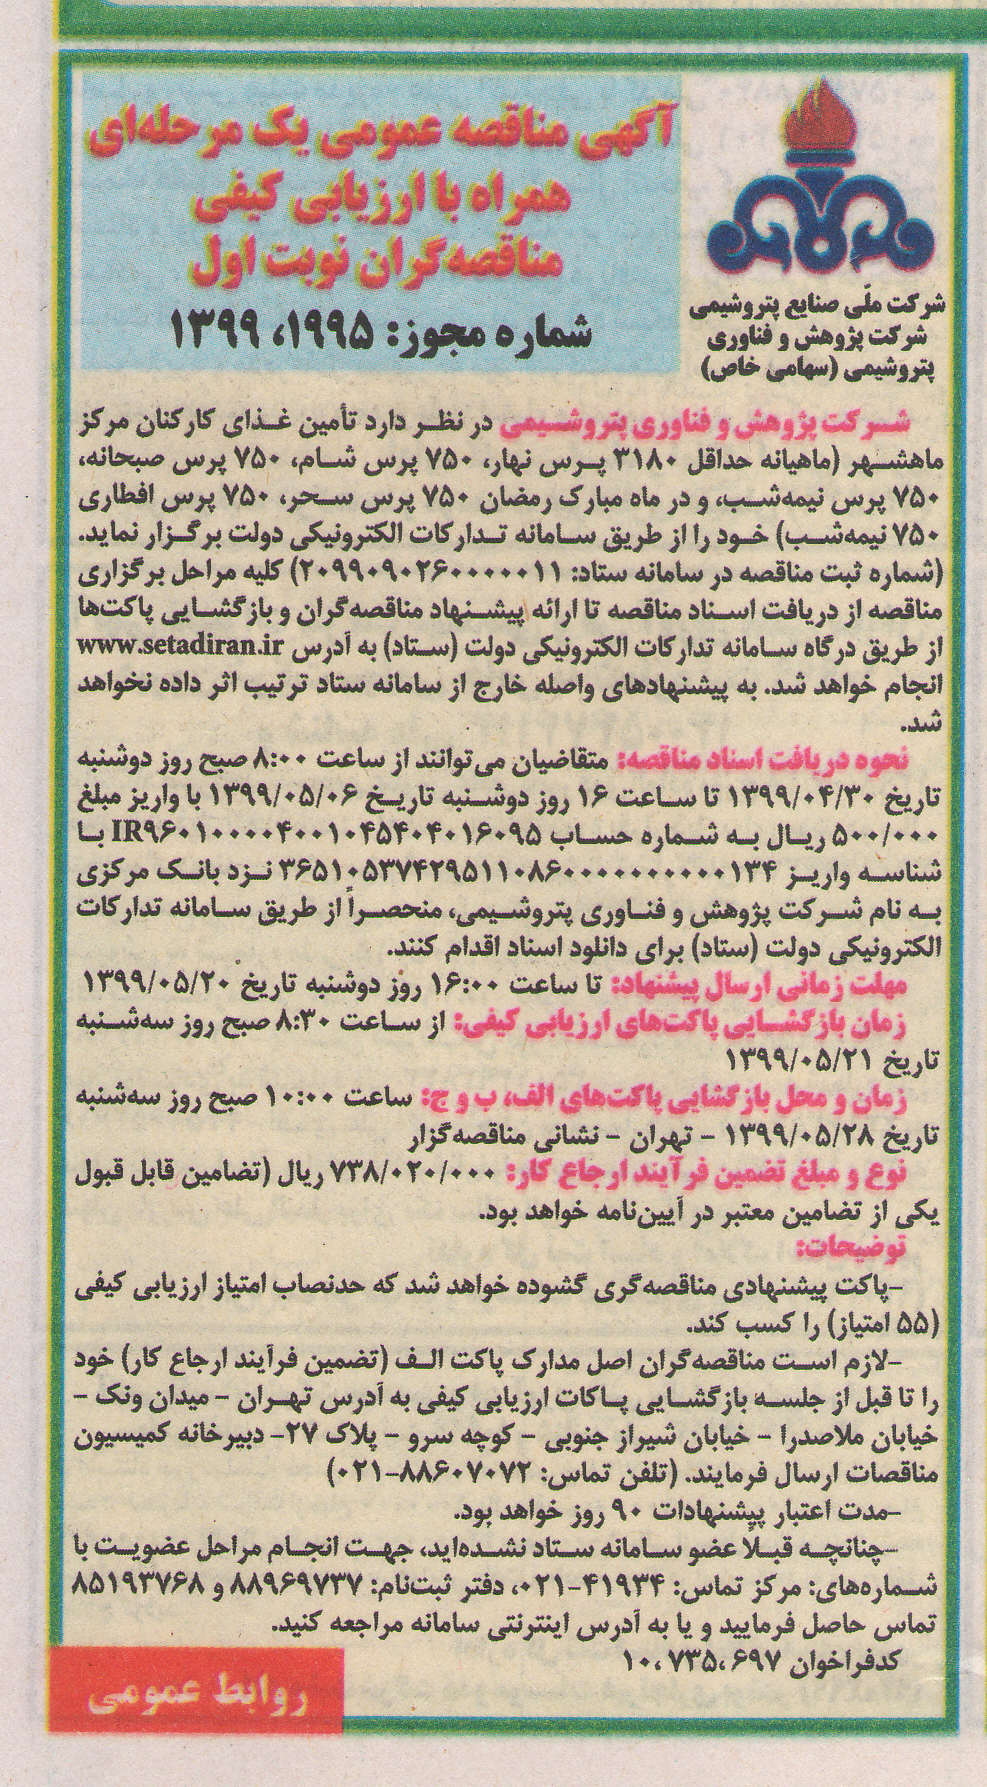 آگهی مناقصه عمومی یک مرحله‌ای
همراه با ارزیابی کیفی
مناقصه‌گران نوبت اول
شماره مجوز: ۱۹۹۵، ۱۳۹۹
شرکت ملّی صنایع پتروشیمی
شرکت پژوهش و فناوری
پتروشیمی (سهامی خاص)
شرکت پژوهش و فناوری پتروشیمی در نظر دارد تأمین غذای کارکنان مرکز
ماهشهر (ماهیانه حداقل ۳۱۸۰ پرس نهار، ۷۵۰ پرس شام، ۷۵۰ پرس صبحانه،
۷۵۰ پرس نیمه‌شب، و در ماه مبارک رمضان ۷۵۰ پرس سحر، ۷۵۰ پرس افطاری
۷۵۰ نیمه‌شب) خود را از طریق سامانه تدارکات الکترونیکی دولت برگزار نماید.
(شماره ثبت مناقصه در سامانه ستاد: ۲۰۹۹۰۹۰۲۶۰۰۰۰۰۱۱) کلیه مراحل برگزاری
مناقصه از دریافت اسناد مناقصه تا ارائه پیشنهاد مناقصه‌گران و بازگشایی پاکت‌ها
از طریق درگاه سامانه تدارکات الکترونیکی دولت (ستاد) به آدرس www.setadiran.ir
انجام خواهد شد. به پیشنهادهای واصله خارج از سامانه ستاد ترتیب اثر داده نخواهد
شد.
نحوه دریافت اسناد مناقصه: متقاضیان می‌توانند از ساعت ۸:۰۰ صبح روز دوشنبه
تاریخ ۱۳۹۹/۰۴/۳۰ تا ساعت ۱۶ روز دوشنبه تاریخ ۱۳۹۹/۰۵/۰۶ با واریز مبلغ
۵۰۰/۰۰۰ ریال به شماره حساب IR۹۶۰۱۰۰۰۰۴۰۰۱۰۴۵۴۰۴۰۱۶۰۹۵ با
شناسه واریز ۳۶۵۱۰۵۳۷۴۲۹۵۱۱۰۸۶۰۰۰۰۰۰۰۰۰۰۰۱۳۴ نزد بانک مرکزی
به نام شرکت پژوهش و فناوری پتروشیمی، منحصراً از طریق سامانه تدارکات
الکترونیکی دولت (ستاد) برای دانلود اسناد اقدام کنند.
مهلت زمانی ارسال پیشنهاد: تا ساعت ۱۶:۰۰ روز دوشنبه تاریخ ۱۳۹۹/۰۵/۲۰
زمان بازگشایی پاکت‌های ارزیابی کیفی: از ساعت ۸:۳۰ صبح روز سه‌شنبه
تاریخ ۱۳۹۹/۰۵/۲۱
زمان و محل بازگشایی پاکت‌های الف، ب و ج: ساعت ۱۰:۰۰ صبح روز سه‌شنبه
تاریخ ۱۳۹۹/۰۵/۲۸ – تهران – نشانی مناقصه‌گزار
نوع و مبلغ تضمین فرآیند ارجاع کار: ۷۳۸/۰۲۰/۰۰۰ ریال (تضامین قابل قبول
یکی از تضامین معتبر در آیین‌نامه خواهد بود.
توضیحات:
-پاکت پیشنهادی مناقصه‌گری گشوده خواهد شد که حدنصاب امتیاز ارزیابی کیفی
(۵۵ امتیاز) را کسب کند.
-لازم است مناقصه‌گران اصل مدارک پاکت الف (تضمین فرآیند ارجاع کار) خود
را تا قبل از جلسه بازگشایی پاکات ارزیابی کیفی به آدرس تهران - میدان ونک -
خیابان ملاصدرا - خیابان شیراز جنوبی - کوچه سرو - پلاک ۲۷- دبیرخانه کمیسیون
مناقصات ارسال فرمایند. (تلفن تماس: ۸۸۶۰۷۰۷۲-۰۲۱)
-مدت اعتبار پیشنهادات ۹۰ روز خواهد بود.
-چنانچه قبلاً عضو سامانه ستاد نشده‌اید، جهت انجام مراحل عضویت با
شماره‌های: مرکز تماس: ۴۱۹۳۴-۰۲۱، دفتر ثبت‌نام: ۸۸۹۶۹۷۳۷ و ۸۵۱۹۳۷۶۸
تماس حاصل فرمایید و یا به آدرس اینترنتی سامانه مراجعه کنید.
کدفراخوان ۱۰،۷۳۵،۶۹۷
روابط عمومی